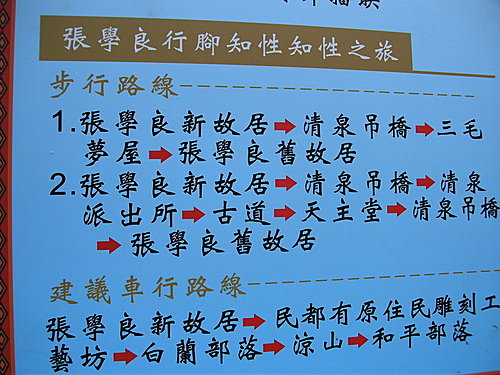 張學良行腳知性知性之旅
步行路線
1.張學良新故居➡清泉吊橋➡三毛
夢屋➡張學良舊故居
2.張學良新故居➡清泉吊橋➡清泉
派出所➡古道➡天主堂➡清泉吊橋
➡張學良舊故居
建議車行路線
張學良新故居➡民都有原住民雕刻工
藝坊➡白蘭部落➡涼山➡和平部落